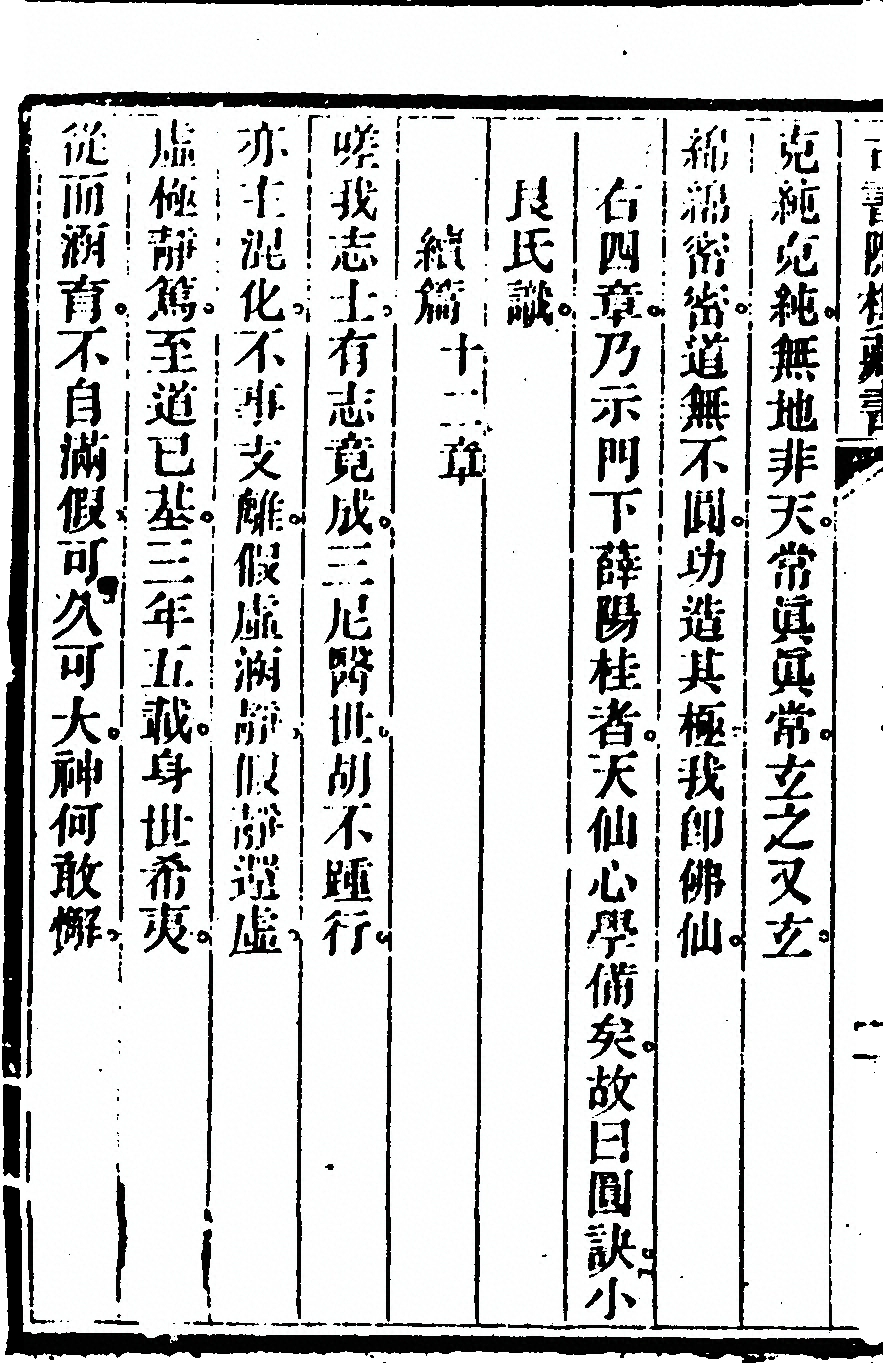 古書隱樓藏書
二
克純克純。無地非天。常眞眞常。玄之又玄。
綿綿密密。道無不圓。功造其極。我卽佛仙。
右四章。乃示門下薛陽桂者。天仙心學備矣。故曰圓訣。小
艮氏識。
續篇十二章
嗟我志士。有志竟成。三尼醫世。胡不踵行。
亦主混化。不事支離。假虛涵靜。假靜還虛。
虛極靜篤。至道已基。三年五載。身世希夷。
從而涵育。不自滿假。可久可大。神何敢懈。